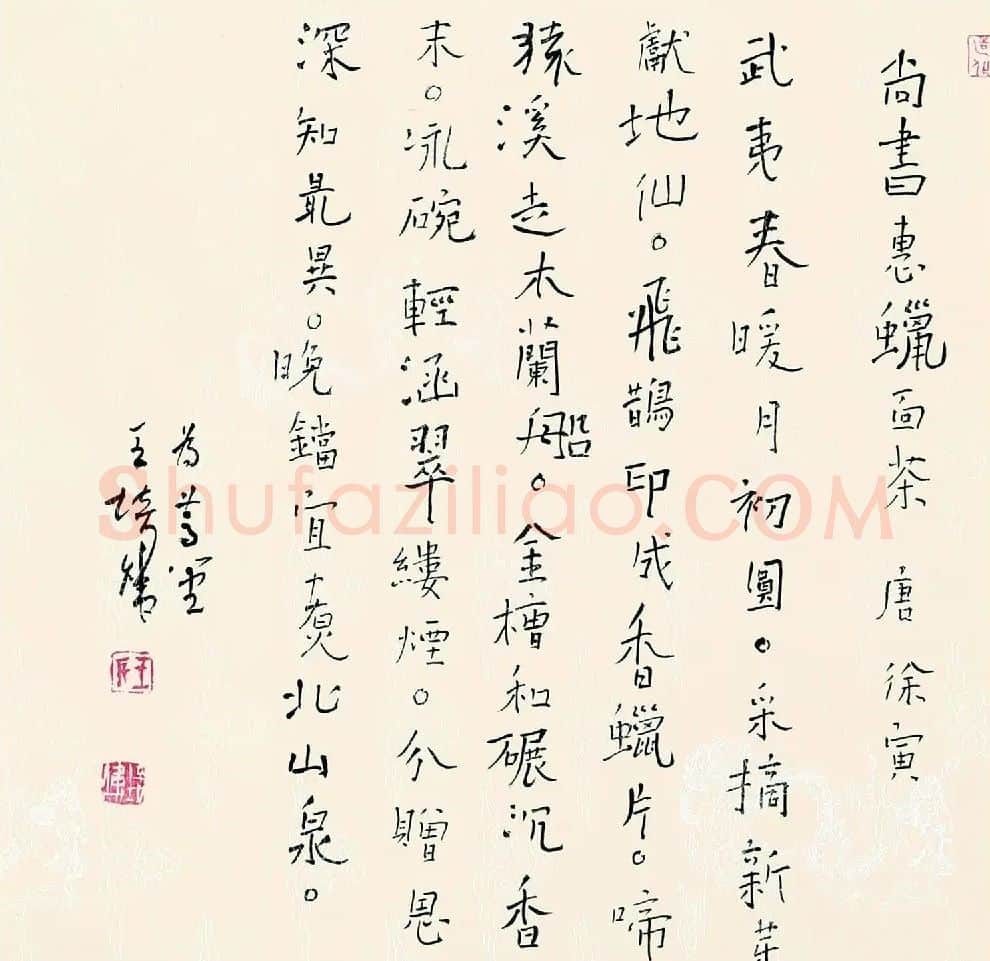 尚書惠蠟面茶 唐 徐寅
武夷春暖月初圓。采摘新芽
獻地仙。飛鵲印成香蠟片。啼
猿溪走木蘭船。金槽和碾沉香
末。冰碗輕涵翠縷煙。分贈恩
深知最異。晚鐺宜煮北山泉。
Shufaziliao.COM